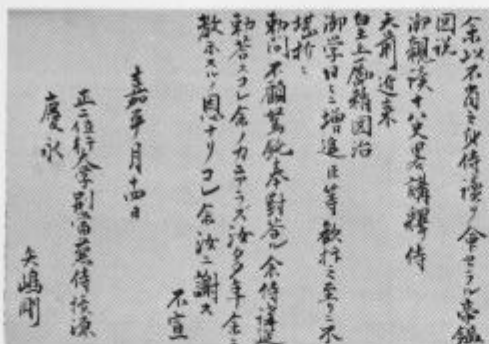 余以不肖之身侍讀ヲ命セラル帝鑑
図説
御親談十八史畧講釋侍
天前近来
皇上励精図治
御学日ニ増進臣等歓抃之至リニ不
堪折々
勅問不顧駑鈍奉對答ル余侍講
勅答スコレ余ノカニアラス汝多年余ニ
教示スルノ恩ナリコレ余汝ニ謝ス
不宣
嘉平月十四日
正二位行大学別當兼侍讀源
慶永
矢嶋剛